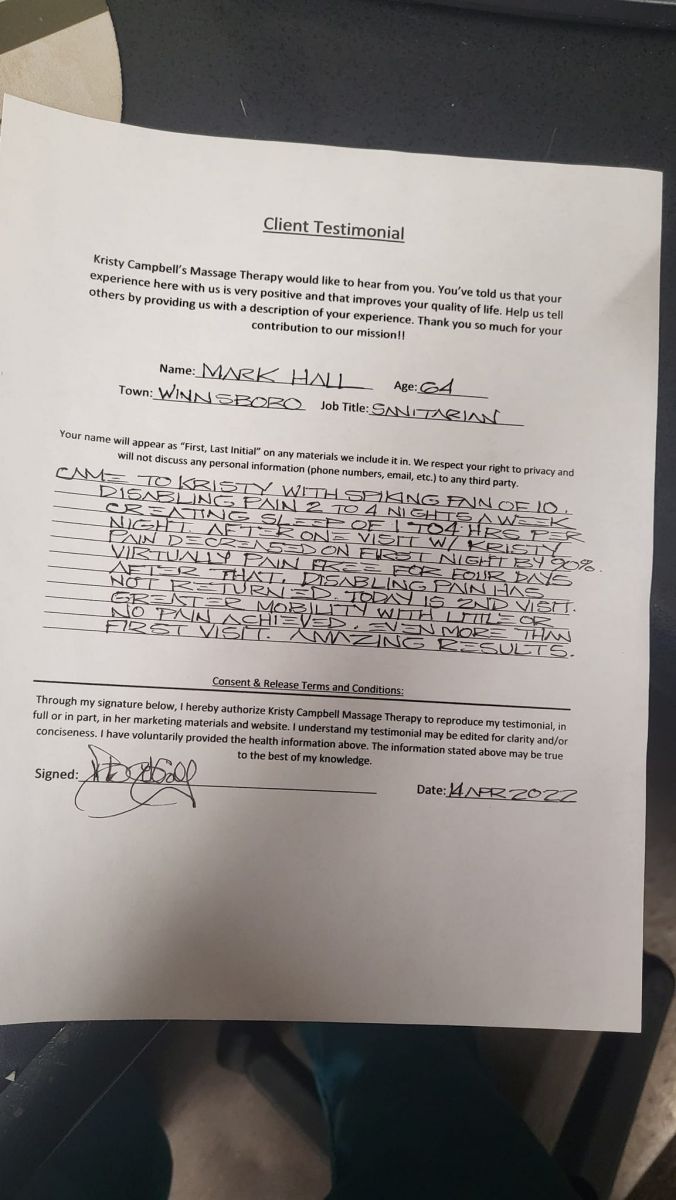 Client Testimonial
Kristy Campbell's Massage Therapy would like to hear from you. You've told us that your
experience here with us is very positive and that improves your quality of life. Help us tell
others by providing us with a description of your experience. Thank you so much for your
contribution to our mission!!
Name: MARK HALL Age: 64
Town: WINNSBORO Job Title: SANITARIAN
Your name will appear as "First, Last Initial" on any materials we include it in. We respect your right to privacy and
will not discuss any personal information (phone numbers, email, etc.) to any third party.
CAME TO KRISTY WITH SPIKING PAIN OF 10.
DISABLING PAIN 2 TO 4 NIGHTS A WEEK
CREATING SLEEP OF 1 TO 4 HRS PER
NIGHT. AFTER ONE VISIT W/ KRISTY
PAIN DECREASED ON FIRST NIGHT BY 90%.
VIRTUALLY PAIN FREE FOR FOUR DAYS
AFTER THAT. DISABLING PAIN HAS
NOT RETURNED. TODAY IS 2ND VISIT.
GREATER MOBILITY WITH LITTLE OR
NO PAIN ACHIEVED. EVEN MORE THAN
FIRST VISIT. AMAZING RESULTS.
Consent & Release Terms and Conditions:
Through my signature below, I hereby authorize Kristy Campbell Massage Therapy to reproduce my testimonial, in
full or in part, in her marketing materials and website. I understand my testimonial may be edited for clarity and/or
conciseness. I have voluntarily provided the health information above. The information stated above may be true
to the best of my knowledge.
Signed:
Date: 14 APR 2022